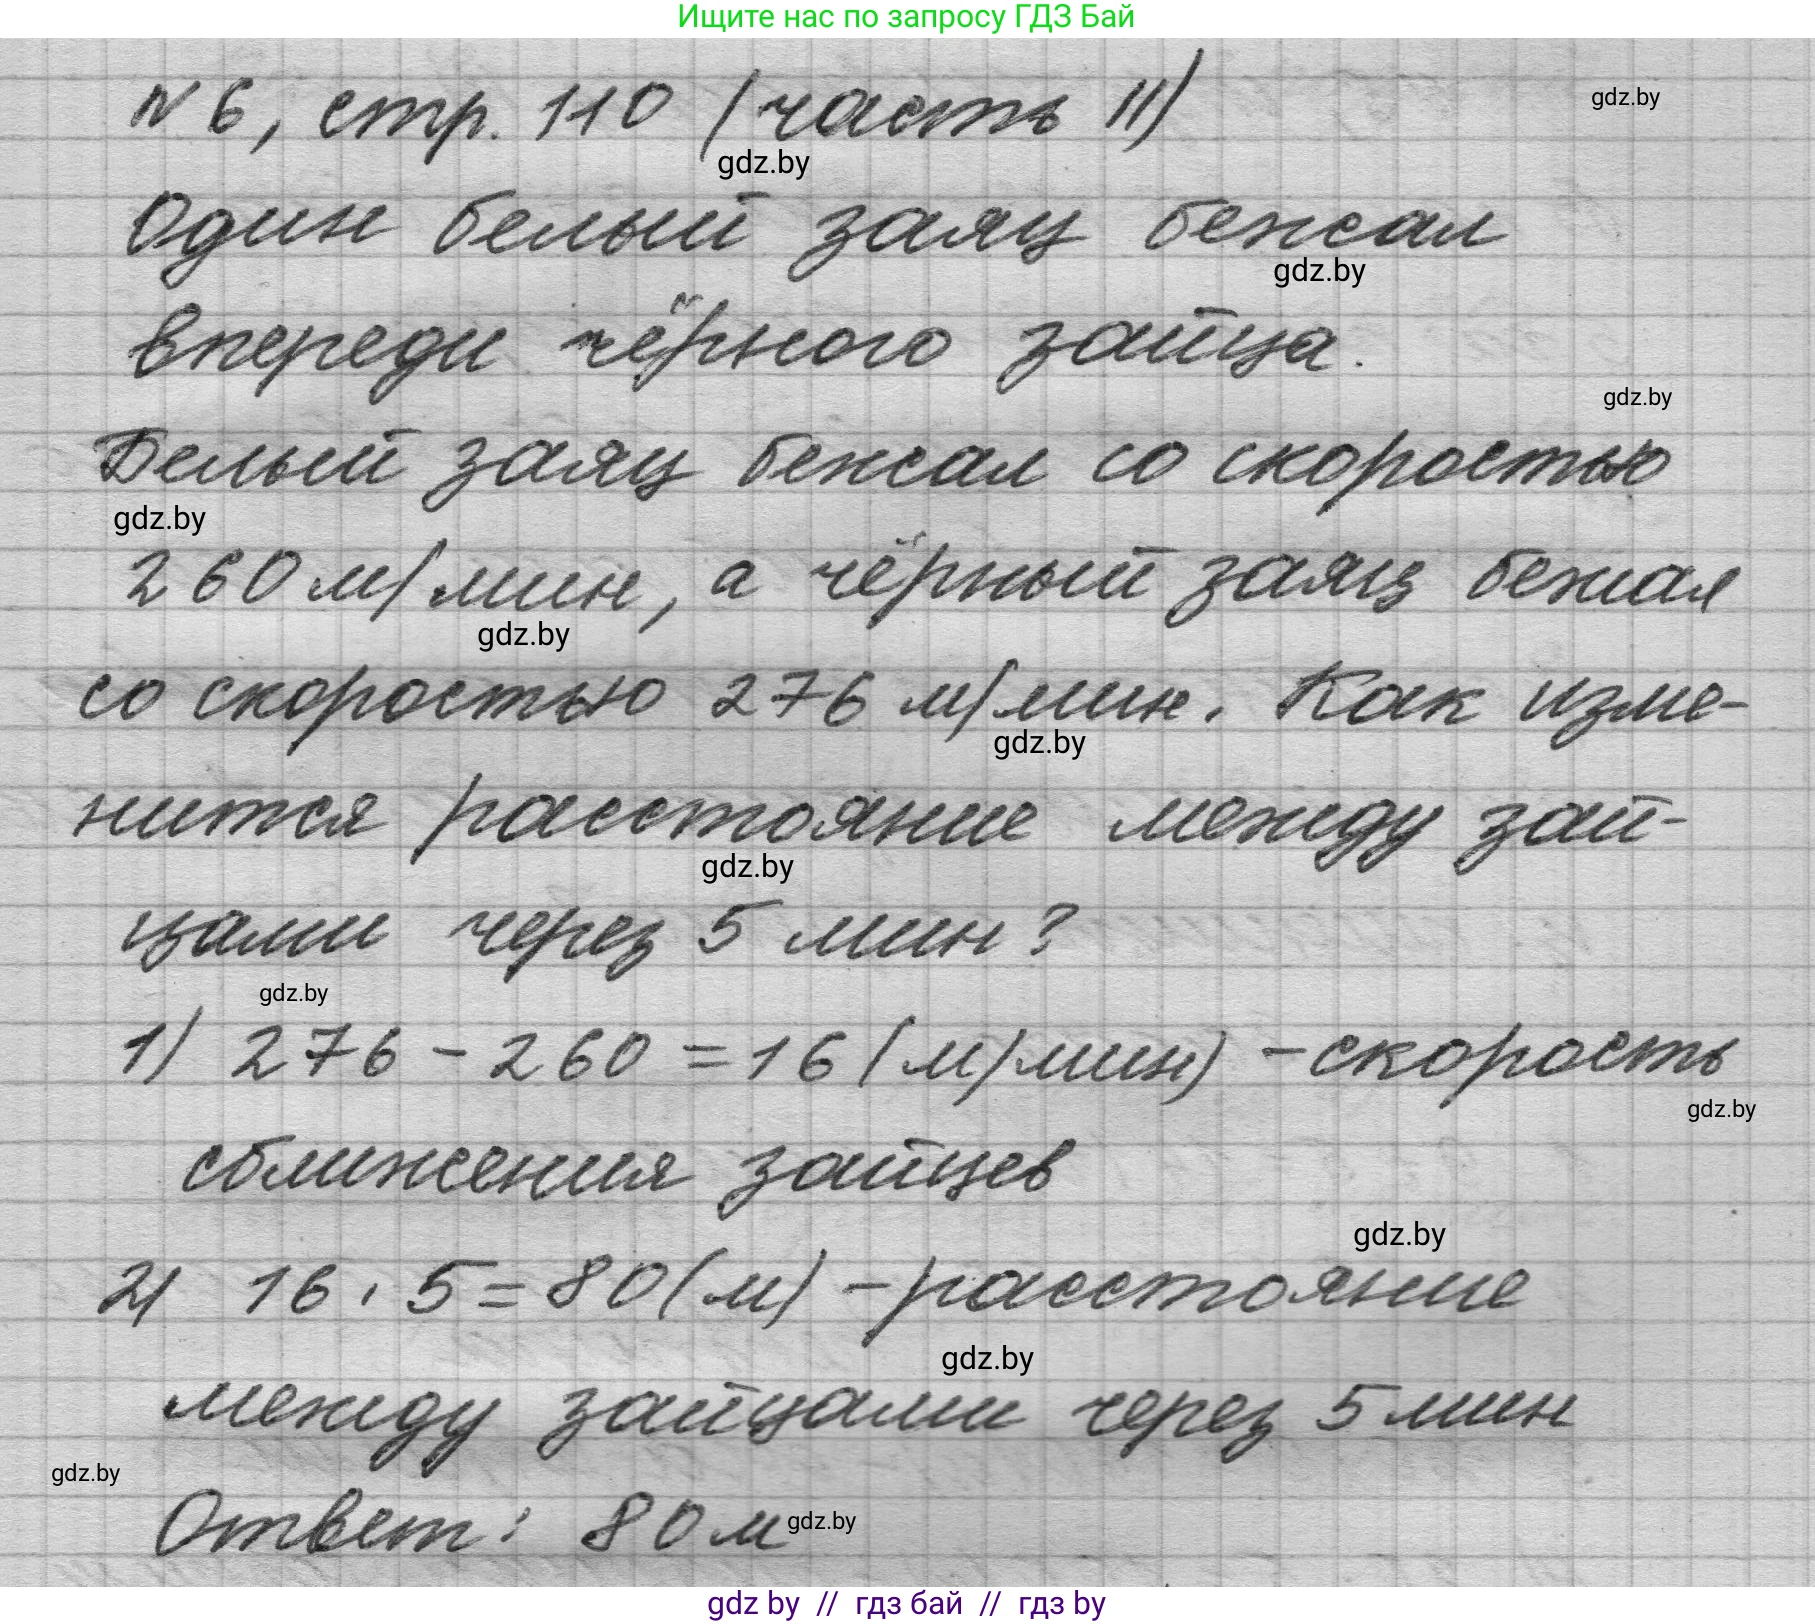 Ищите нас по запросу ГДЗ Бай
№ 6, стр. 110 (часть II)
gdz.by
gdz.by
Один белый заяц бежал
gdz.by
впереди чёрного зайца.
gdz.by
Белый заяц бежал со скоростью
gdz.by
260 м/мин, а чёрный заяц бежал
gdz.by
со скоростью 276 м/мин. Как изме-
gdz.by
нится расстояние между зай-
gdz.by
цами через 5 мин?
gdz.by
1) 276 - 260 = 16 (м/мин) - скорость
gdz.by
сближения зайцев
gdz.by
2) 16 · 5 = 80 (м) - расстояние
gdz.by
между зайцами через 5 мин
gdz.by
Ответ: 80 м
gdz.by
gdz by // гдз бай // гдз by